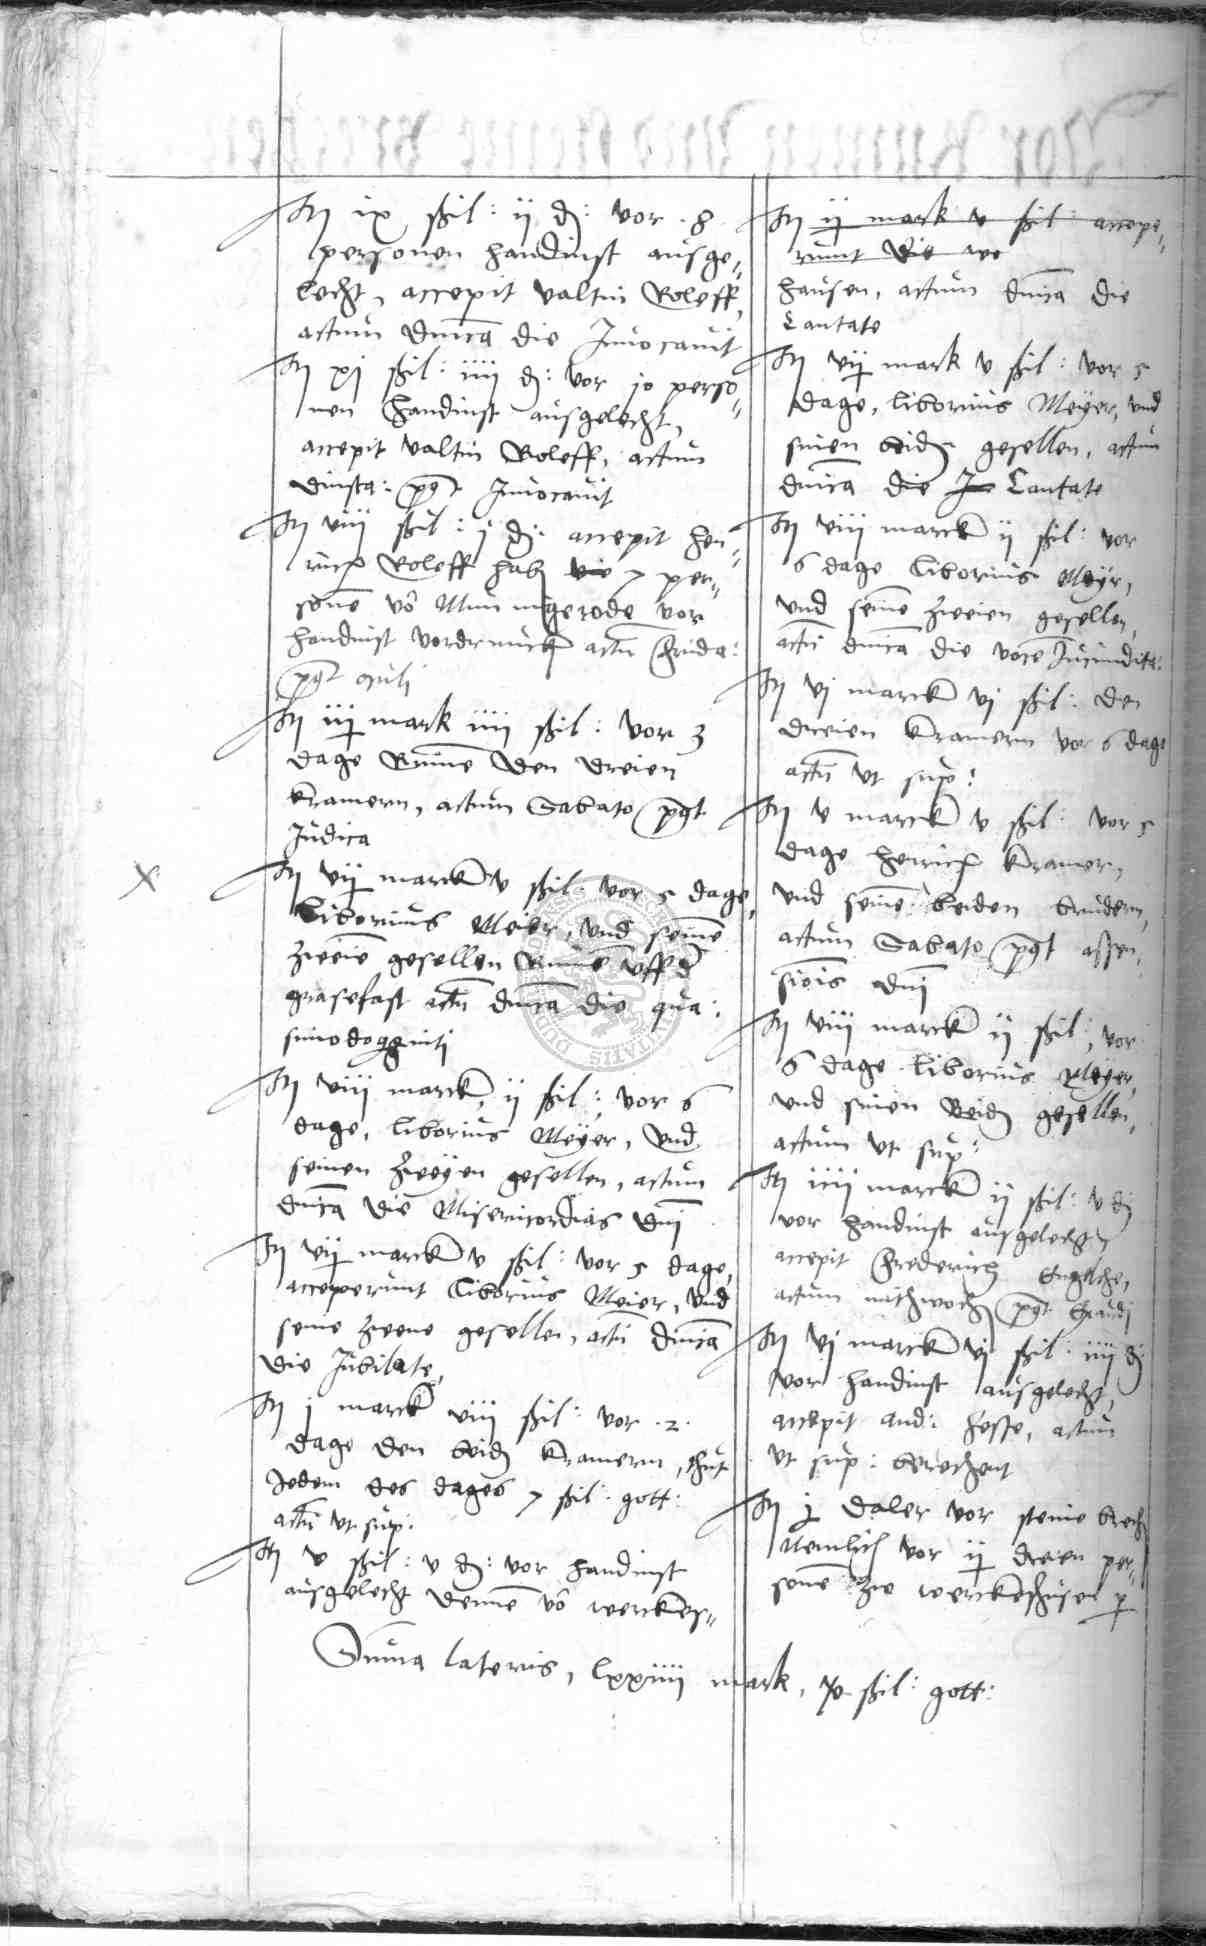 Itm ix ßil: ij d: vor .8.
personen handinst ausge„
lecht, accepit valtin Roleff,
actum dnica die Invocavit
Itm xj ßil: iiij d: vor jo perso„
nen handinst ausgelecht,
accepit valtin Roleff, actum
dinsta: pqt Invocavit
Itm viij ßil: j d: accepit Hen„
rich Roleff hab vie 7 per„
sone vo gerode vor
handinst actu frida:
pqt oculi
Itm iij mark iiij ßil: vor 3
dage Rume den dreien
kramern, actum Sabato pqt
Judica
Itm vij marck v ßil: vor 5 dage,
Liborius Meier, und seine
zweie gesellen Rume uff d
grasefast actu dnica die qua:
simodogeniti
Itm viij marck, ij ßil:, vor 6
dage, liborius Meÿer, und
seinen zweÿen gesellen, actum
dnica die Misericordias dni
Itm vij marck v ßil: vor 5 dage,
acceperunt liborius Meier, und
seine zweene gesellen, actu dnica
die Jubilate,
Itm j marck viij ßil: vor .2.
dage den beid kramern, thut
Jedem des dages 7 ßil: gott:
actu ut sup:
Itm v ßil: v d: vor handinst
ausgelecht denne vo werckes„
Itm ij mark v ßil: accepe„
runt die we
hausen, actum dnica die
Cantate
Itm vij mark v ßil: vor 5
dage, liborius Meÿer, und
sinen beid gesellen, actum
dnica die Ju Cantate
Itm viij marck ij ßil: vor
6 dage liborius Meÿr,
und seine zweien gesellen,
actu dnica die voce Jucundita:
Itm vj marck vj ßil: den
dreien kramern vor 6 dage
actu ut sup:
Itm v marck v ßil: vor 5
dage henrich kramer,
und seine beiden brudern,
actum Sabato pqt assen„
siois dni
Itm viij marck ij ßil:, vor
6 dage liborius Meÿer,
und sinen Beid gesellen,
actum ut sup:
Itm iiij marck ij ßil: v d
vor handinst ausgelecht,
accepit Frederich Engelche,
actum mithwoch pqt Exaudi
Itm vj marck vj ßil: iiij d:
vor handinst ausgelecht,
accepit and: hesse, actum
ut sup: berechent
Itm j daler vor steine brech
Nemlich vor ij dreien per„
sone zu werckeshusen
Suma lateris, lxxiiij mark, x ßil: gott: